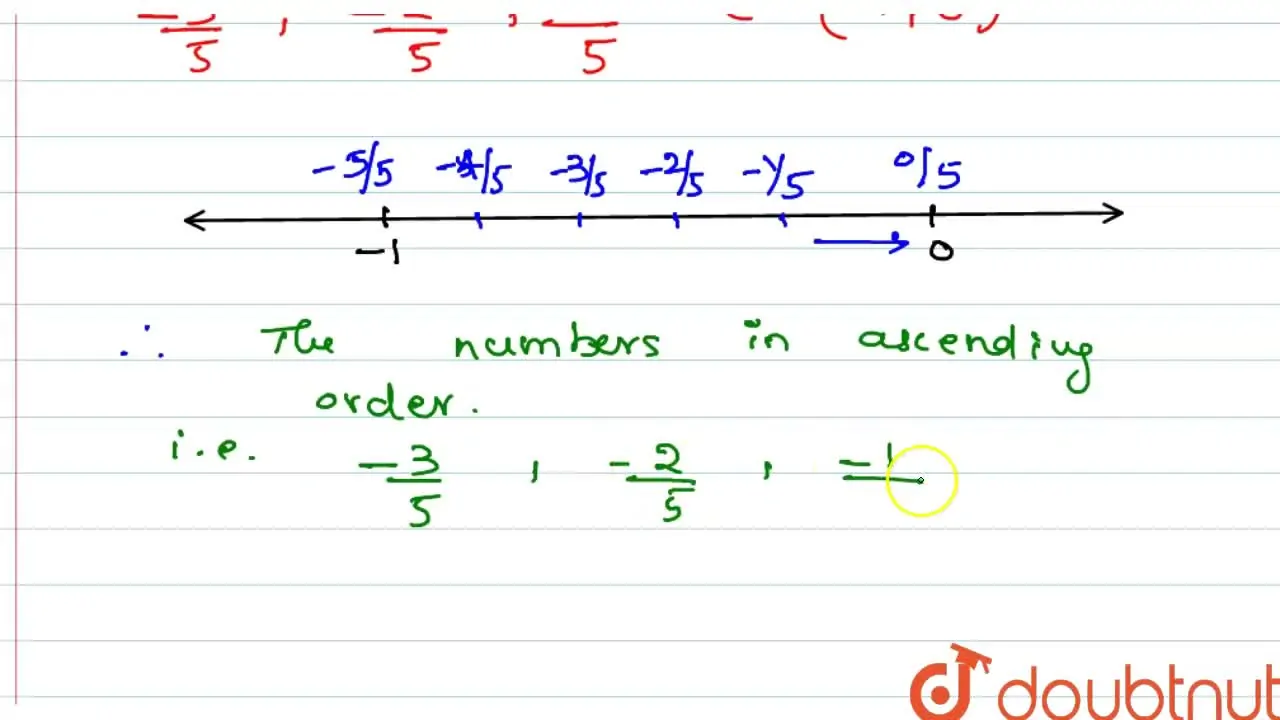 5 , 5 , 5
-5/5 -4/5 -3/5 -2/5 -1/5 0/5
-1 0
∴ The numbers in ascending
order.
i.e. -3/5 , -2/5 , -1
doubtnut